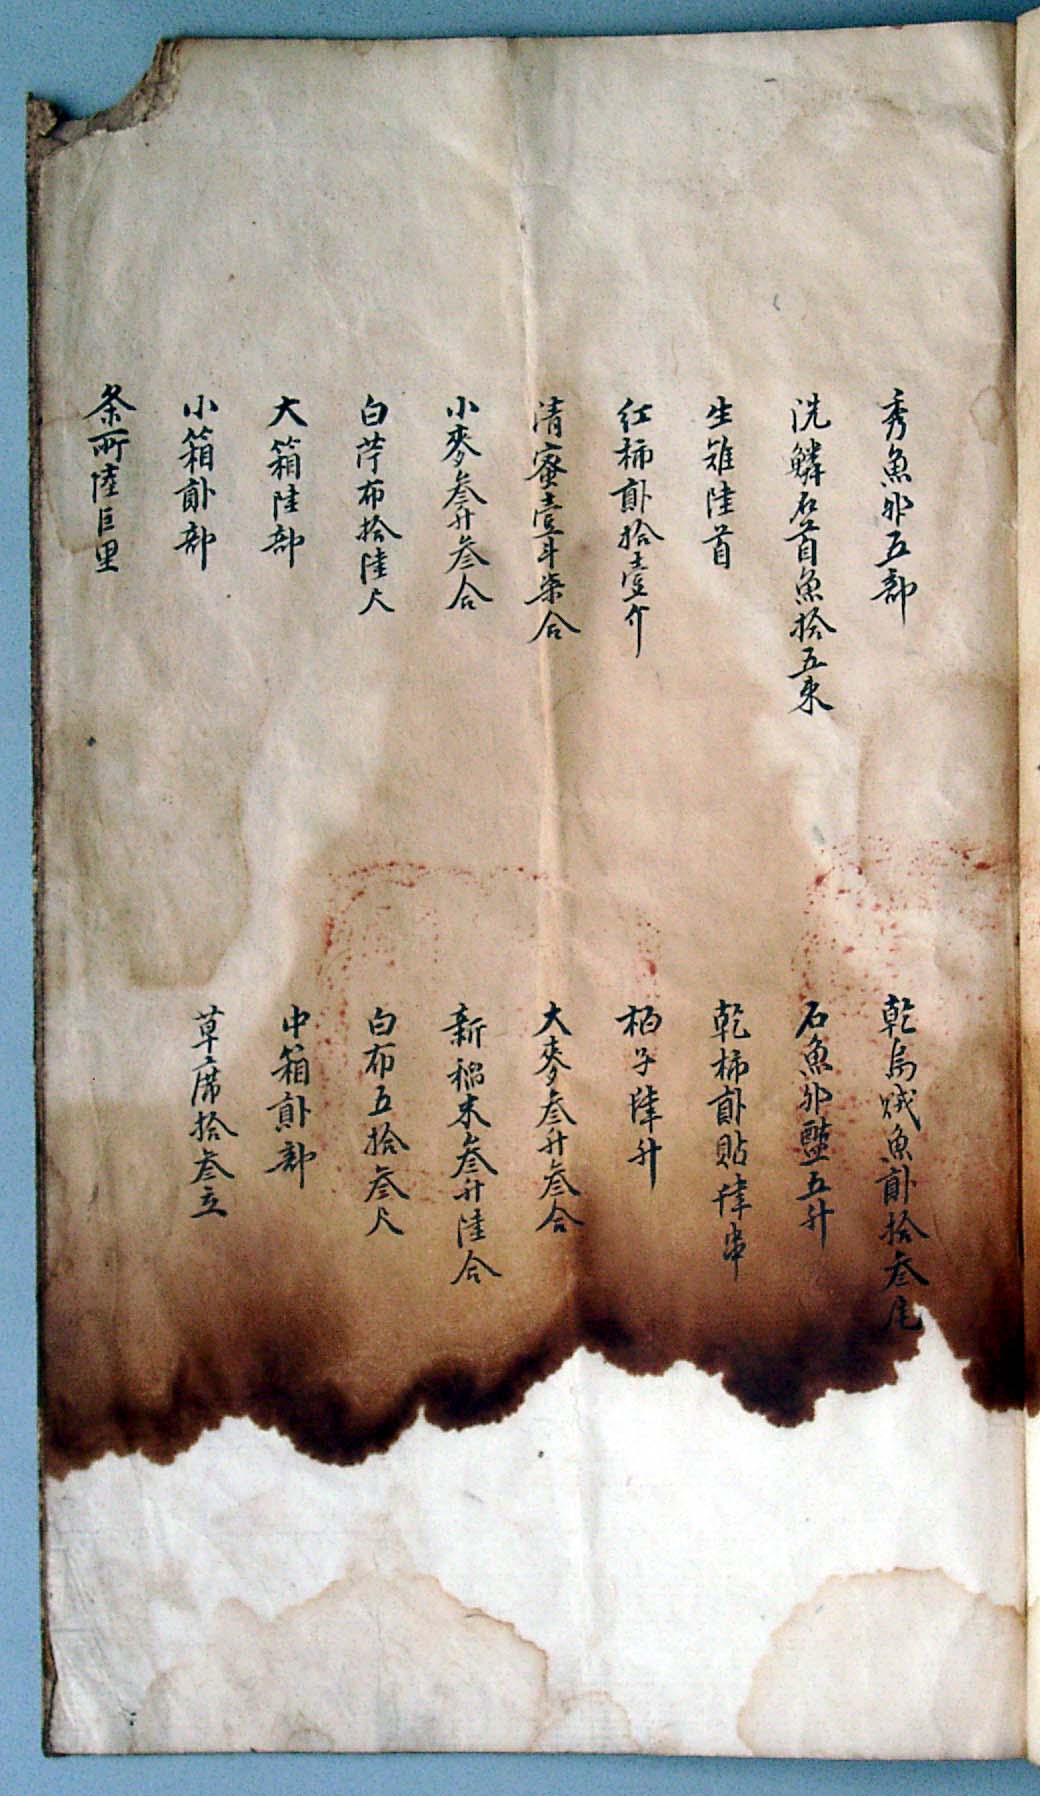 秀魚卵五部
乾烏賊魚貳拾叁尾
洗鱗石首魚拾五束
石魚卵醢五升
生雉陸首
乾柿貳貼肆串
紅柿貳拾壹介
栢子陸升
清蜜壹斗柒合
大麥叁升叁合
小麥叁升叁合
新稻米叁升陸合
白苧布拾陸尺
白布五拾叁尺
大箱陸部
中箱貳部
小箱貳部
草席拾叁立
条所陸巨里